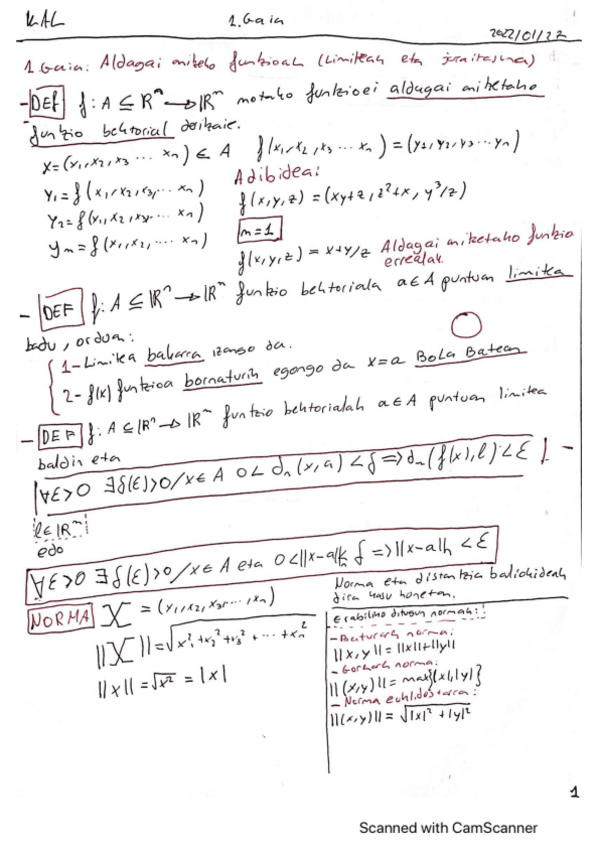 KAL 1. Gaia 2022/01/27
1. Gaia: Aldagai anitzeko funtzioak (Limiteak eta jarraitasuna)
- DEF f: A ⊆ ℝⁿ → ℝᵐ motako funtzioei aldagai anitzeko
funtzio bektorial deritzaie.
x = (x₁, x₂, x₃ ... xₙ) ∈ A f(x₁, x₂, x₃ ... xₙ) = (y₁, y₂, y₃ ... yₙ)
y₁ = f(x₁, x₂, x₃, ... xₙ) Adibidea:
y₂ = f(x₁, x₂, x₃, ... xₙ) f(x, y, z) = (xy+z, z²+x, y³/z)
yₘ = f(x₁, x₂, ... xₙ) m=1
f(x, y, z) = x+y/z Aldagai anitzetako funtzio
errealak.
- DEF f: A ⊆ ℝⁿ → ℝᵐ funtzio bektoriala a∈A puntuan limitea
badu, orduan:
1- Limitea bakarra izango da.
2- f(x) funtzioa bornaturik egongo da x=a Bola Batean
- DEF f: A ⊆ ℝⁿ → ℝᵐ funtzio bektorialak a∈A puntuan limitea
baldin eta
∀ε>0 ∃δ(ε)>0 / x∈A 0<dₙ(x, a)<δ => dₙ(f(x), l)<ε
l∈ℝᵐ
edo
∀ε>0 ∃δ(ε)>0 / x∈A eta 0<||x-a||<δ => ||x-a||ₙ<ε
Norma eta distantzia baliokideak
dira kasu honetan.
NORMA X = (x₁, x₂, x₃, ..., xₙ)
||X|| = √x₁²+x₂²+x₃²+ ... +xₙ²
||x|| = √x² = |x|
Erabiliko ditugun normak:
- Baturaren norma:
||x, y|| = ||x||+||y||
- Gorenaren norma:
||(x, y)|| = max{|x|, |y|}
- Norma euklidestarra:
||(x, y)|| = √|x|²+|y|²
1
Scanned with CamScanner